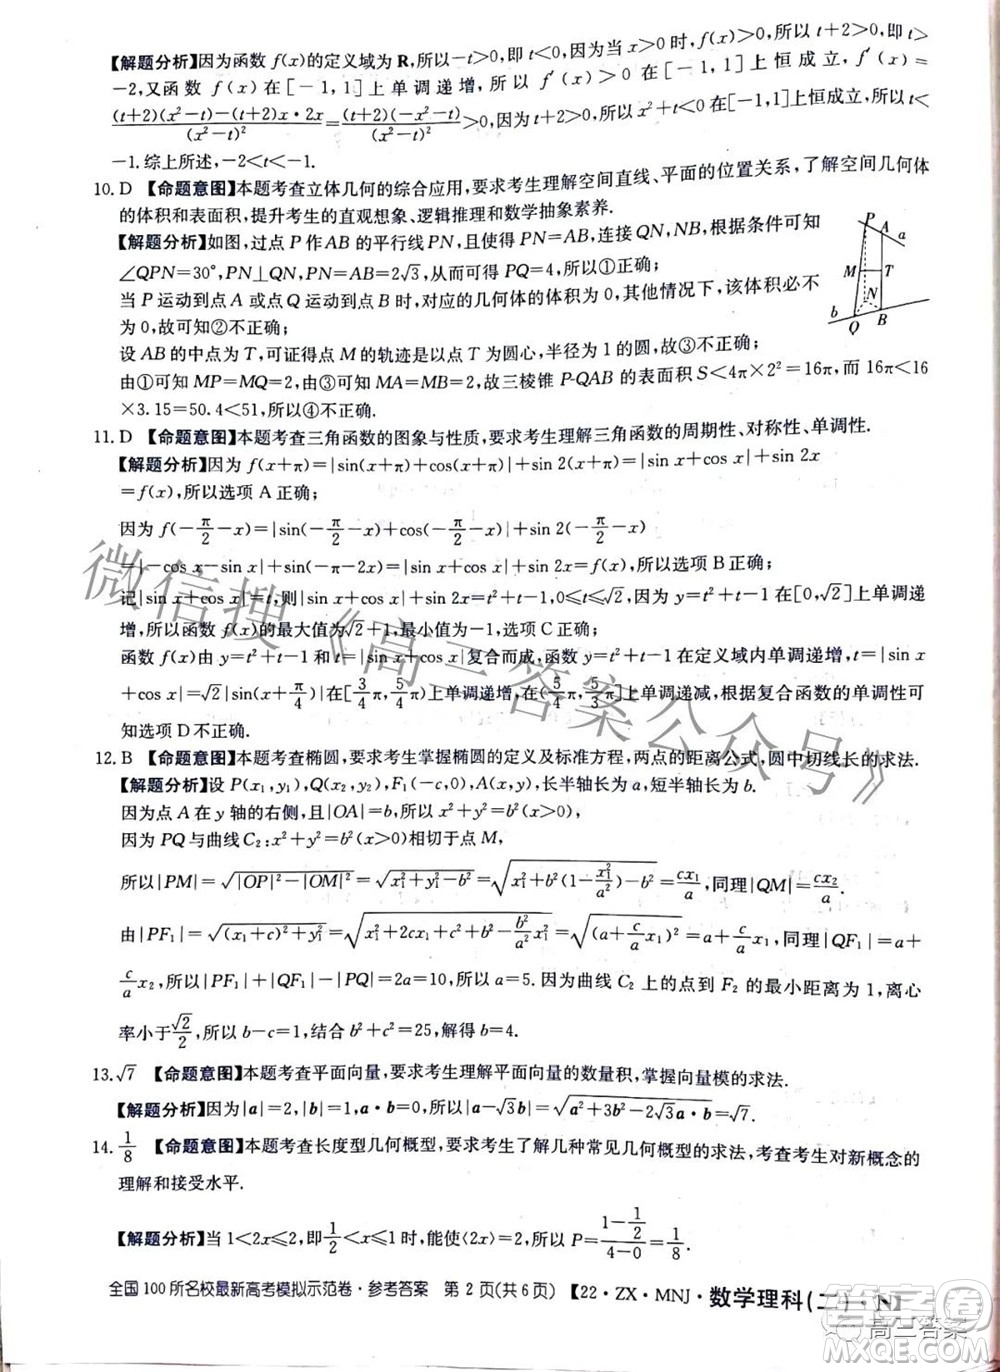 【解题分析】因为函数 f(x)的定义域为 R,所以-t>0,即 t<0,因为当 x>0 时,f(x)>0,所以 t+2>0,即 t>
-2,又函数 f(x)在[-1,1]上单调递增,所以 f′(x)>0 在[-1,1]上恒成立,f′(x)=
\frac{(t+2)(x²-t)-(t+2)x·2x}{(x²-t)²}=\frac{(t+2)(-x²-t)}{(x²-t)²}>0,因为 t+2>0,所以 x²+t<0在[-1,1]上恒成立,所以 t<
-1.综上所述,-2<t<-1.
10. D 【命题意图】本题考查立体几何的综合应用,要求考生理解空间直线、平面的位置关系,了解空间几何体
的体积和表面积,提升考生的直观想象、逻辑推理和数学抽象素养.
【解题分析】如图,过点 P 作 AB 的平行线 PN,且 PN=AB,连接 QN,NB,根据条件可知
∠QPN=30°,PN⊥QN,PN=AB=2√3,从而可得 PQ=4,所以①正确;
当 P 运动到点 A 或点 Q 运动到点 B 时,对应的几何体的体积为 0,其他情况下,该体积必不
为 0,故可知②不正确;
设 AB 的中点为 T,可知点 M 的轨迹是以点 T 为圆心,半径为 1 的圆,故③不正确;
由①可知 MP=MQ=2,由③可知 MA=MB=2,故三棱锥 P-QAB 的表面积 S<4π×2²=16π,而 16π<16
×3.15=50.4<51,所以④不正确.
P
A
a
M
T
N
b
Q
B
11. D 【命题意图】本题考查三角函数的图象与性质,要求考生理解三角函数的周期性、对称性、单调性.
【解题分析】因为 f(x+π)=|sin(x+π)+cos(x+π)|+sin 2(x+π)=|sin x+cos x|+sin 2x
=f(x),所以选项 A 正确;
因为 f(-\frac{π}{2}-x)=|sin(-\frac{π}{2}-x)+cos(-\frac{π}{2}-x)|+sin 2(-\frac{π}{2}-x)
=|-cos x-sin x|+sin(-π-2x)=|sin x+cos x|+sin 2x=f(x),所以选项 B 正确;
记|sin x+cos x|=t,则|sin x+cos x|+sin 2x=t²+t-1,0≤t≤√2,因为 y=t²+t-1 在[0,√2]上单调递
增,所以函数 f(x)的最大值为√2+1,最小值为-1,选项 C 正确;
函数 f(x)由 y=t²+t-1 和 t=|sin x+cos x|复合而成,函数 y=t²+t-1 在定义域内单调递增,t=|sin x+
cos x|=√2|sin(x+\frac{π}{4})|在[\frac{3}{4}π,\frac{5}{4}π]上单调递增,在(\frac{5}{4}π,\frac{5}{3}π]上单调递减,根据复合函数的单调性可
知选项 D 不正确.
12. B 【命题意图】本题考查椭圆,要求考生掌握椭圆的定义及标准方程,两点的距离公式,圆中切线长的求法.
【解题分析】设 P(x₁,y₁),Q(x₂,y₂),F₁(-c,0),A(x,y),长半轴长为 a,短半轴长为 b.
因为点 A 在 y 轴的右侧,且|OA|=b,所以 x²+y²=b²(x>0).
因为 PQ 与曲线 C₂:x²+y²=b²(x>0)相切于点 M,
所以|PM|=\sqrt{|OP|²-|OM|²}=\sqrt{x₁²+y₁²-b²}=\sqrt{x₁²+b²(1-\frac{x₁²}{a²})-b²}=\frac{cx₁}{a},同理|QM|=\frac{cx₂}{a}.
由|PF₁|=\sqrt{(x₁+c)²+y₁²}=\sqrt{x₁²+2cx₁+c²+b²-\frac{b²}{a²}x₁²}=\sqrt{(a+\frac{c}{a}x₁)²}=a+\frac{c}{a}x₁,同理|QF₁|=a+
\frac{c}{a}x₂,所以|PF₁|+|QF₁|-|PQ|=2a=10,所以 a=5.因为曲线 C₂ 上的点到 F₂ 的最小距离为 1,离心
率小于\frac{√2}{2},所以 b-c=1,结合 b²+c²=25,解得 b=4.
13. √7 【命题意图】本题考查平面向量,要求考生理解平面向量的数量积,掌握向量模的求法.
【解题分析】因为|a|=2,|b|=1,a·b=0,所以|a-√3b|=\sqrt{a²+3b²-2√3a·b}=√7.
14. \frac{1}{8} 【命题意图】本题考查长度型几何概型,要求考生了解几种常见几何概型的求法,考查考生对新概念的
理解和接受水平.
【解题分析】当 1<2x≤2,即\frac{1}{2}<x≤1 时,[2x]=2,所以 P=\frac{1-\frac{1}{2}}{4-0}=\frac{1}{8}.
全国 100 所名校最新高考模拟示范卷·参考答案 第 2 页(共 6 页) 【22·ZX·MNJ·数学理科(二)·N】
微信搜《高三答案公众号》
答案圈
高三答案